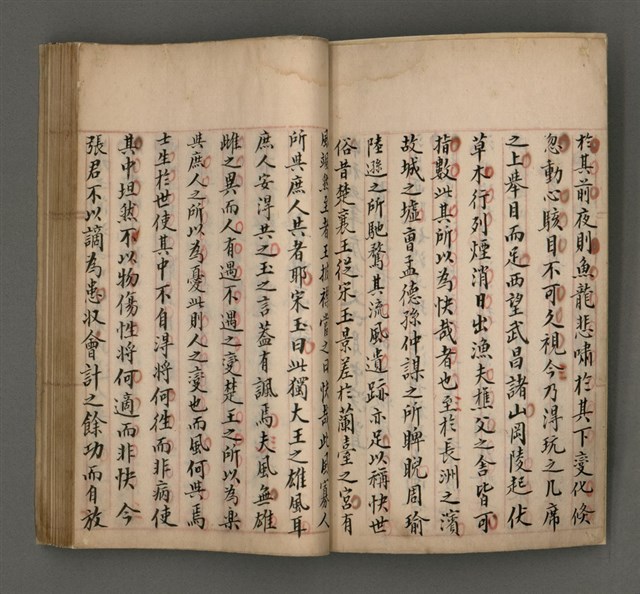 於其前夜則魚龍悲嘯於其下變化倏
忽動心駭目不可久視今乃得玩之几席
之上舉目而足西望武昌諸山岡陵起伏
草木行列煙消日出漁夫樵父之舍皆可
指數此其所以為快哉者也至於長洲之濱
故城之墟曹孟德孫仲謀之所睥睨周瑜
陸遜之所馳騖其流風遺跡亦足以稱快世
俗昔楚襄王從宋玉景差於蘭臺之宮有
風颯然至者王披襟當之曰快哉此風寡人
所與庶人共者耶宋玉曰此獨大王之雄風耳
庶人安得共之玉之言蓋有諷焉夫風無雄
雌之異而人有遇不遇之變楚王之所以為樂
與庶人之所以為憂此則人之變也而風何與焉
士生於世使其中不自得將何徃而非病使
其中坦然不以物傷性將何適而非快今
張君不以謫為患収會計之餘功而自放